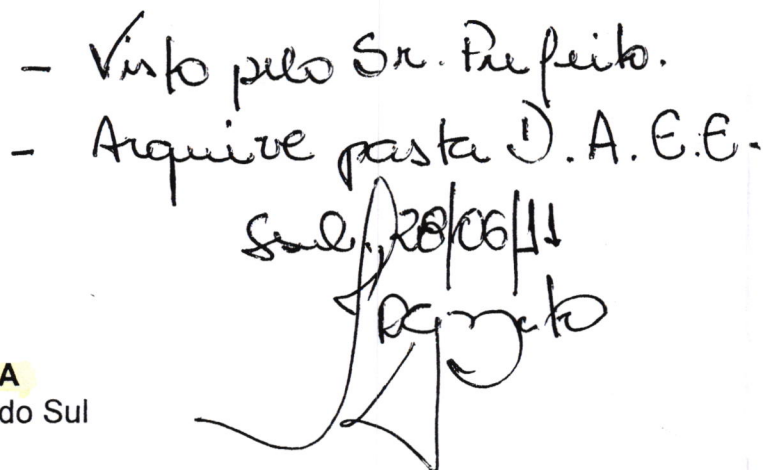 - Visto pelo Sr. Prefeito.
- Arquive pasta D.A.E.E.
28/06/11
A
do Sul